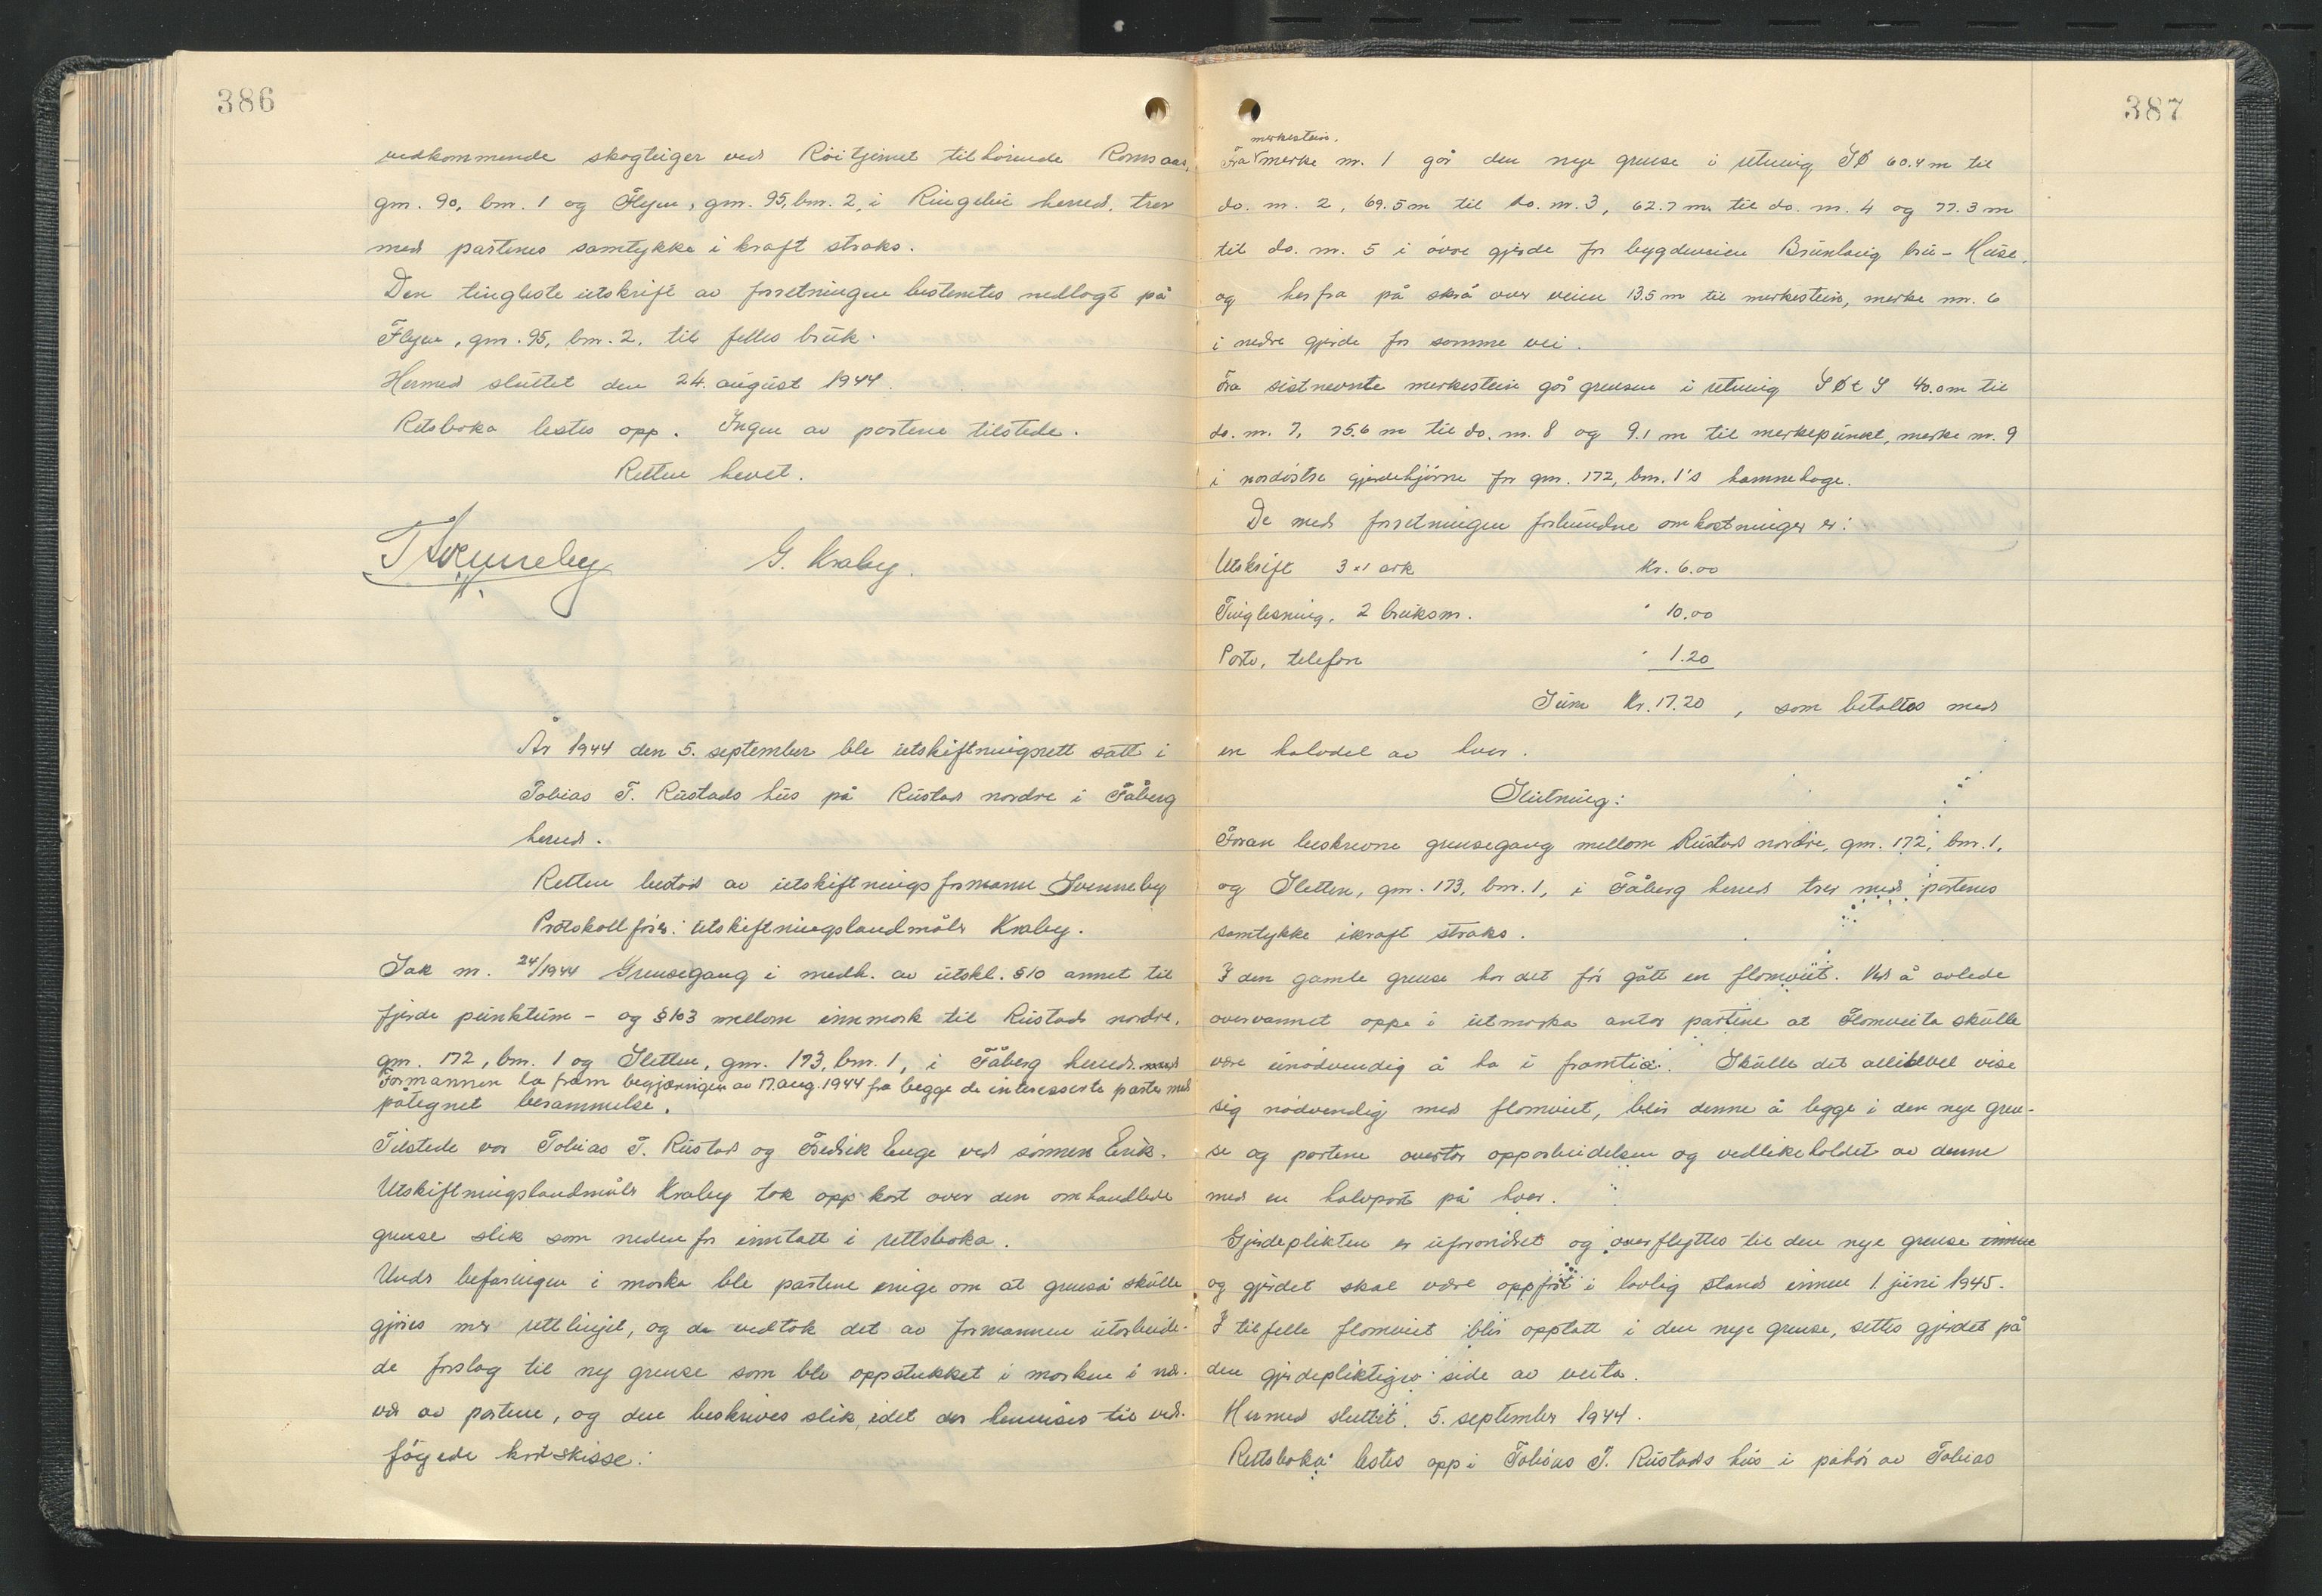 386
vedkommende skogteiger ved Röitjernet tilhörende Romsaas,
gnr. 90, bnr. 1 og Flyen, gnr. 95, bnr. 2, i Ringebu herred, trer
med partenes samtykke i kraft straks.
Den tingleste utskrift av forretningen bestemtes nedlagt på
Flyen, gnr. 95, bnr. 2, til felles bruk.
Hermed sluttet den 24. august 1944.
Retsboka lestes opp. Ingen av partene tilstede.
Retten hevet.
T Svenneby G. Kraby.
År 1944 den 5. september ble utskiftningsrett satt i
Tobias T. Rustads hus på Rustad nordre i Fåberg
herred.
Retten bestod av utskiftningsformann Svenneby
Protokollförer: utskiftningslandmåler Kraby.
Sak nr. 24/1944 Grensegang i medh. av utskl. § 10 annet til
fjerde punktum – og § 103 mellom innmark til Rustad nordre,
gnr. 172, bnr. 1 og Sletten, gnr. 173, bnr. 1, i Fåberg herred.
Formannen la fram begjæringen av 17. aug. 1944 fra begge de interesserte parter med
påtegnet berammelse.
Tilstede var Tobias T. Rustad og Fredrik Enge ved sönnen Erik.
Utskiftningslandmåler Kraby tok opp kart over den omhandlede
grense slik som nedenfor inntatt i rettsboka.
Under befaringen i marka ble partene enige om at grensa skulle
gjöres mer rettlinjet, og de vedtok det av formannen utarbeide-
de forslag til ny grense som ble oppstukket i marken i nær-
vær av partene, og den beskrives slik, idet der henvises til ved-
föyede kartskisse:
387
merkestein,
Fra merke nr. 1 går den nye grense i retning SØ 60.4 m til
do. nr. 2, 69.5 m til do. nr. 3, 62.7 m til do. nr. 4 og 77.3 m
til do. nr. 5 i övre gjerde for bygdeveien Brunlaug bru – Huse,
og herfra på skrå over veien 13.5 m til merkestein, merke nr. 6
i nedre gjerde for samme vei.
Fra sistnevnte merkestein går grensen i retning SØtS 40.0 m til
do. nr. 7, 75.6 m til do. nr. 8 og 9.1 m til merkepunkt, merke nr. 9
i nordöstre gjerdehjörne for gnr. 172, bnr. 1's hamnehage.
De med forretningen forbundne omkostninger er:
Utskrift 3 × 1 ark Kr. 6.00
Tinglesning, 2 bruksnr. " 10.00
Porto, telefon " 1.20
Sum Kr. 17.20, som betaltes med
en halvdel av hver.
Slutning:
Foran beskrevne grensegang mellom Rustad nordre, gnr. 172, bnr. 1,
og Sletten, gnr. 173, bnr. 1, i Fåberg herred trer med partenes
samtykke ikraft straks.
I den gamle grense har det för gått en flomveit. Ved å avlede
overvannet oppe i utmarka antar partene at flomveita skulle
være unödvendig å ha i framtida. Skulle det allikevel vise
sig nödvendig med flomveit, blir denne å legge i den nye gren-
se og partene overtar opparbeidelsen og vedlikeholdet av denne
med en halvpart på hver.
Gjerdeplikten er uforandret og overflyttes til den nye grense innen
og gjerdet skal være oppfört i lovlig stand innen 1. juni 1945.
I tilfelle flomveit blir opptatt i den nye grense, settes gjerdet på
den gjerdepliktiges side av veita.
Hermed sluttet 5. september 1944.
Rettsboka lestes opp i Tobias T. Rustads hus i påhör av Tobias